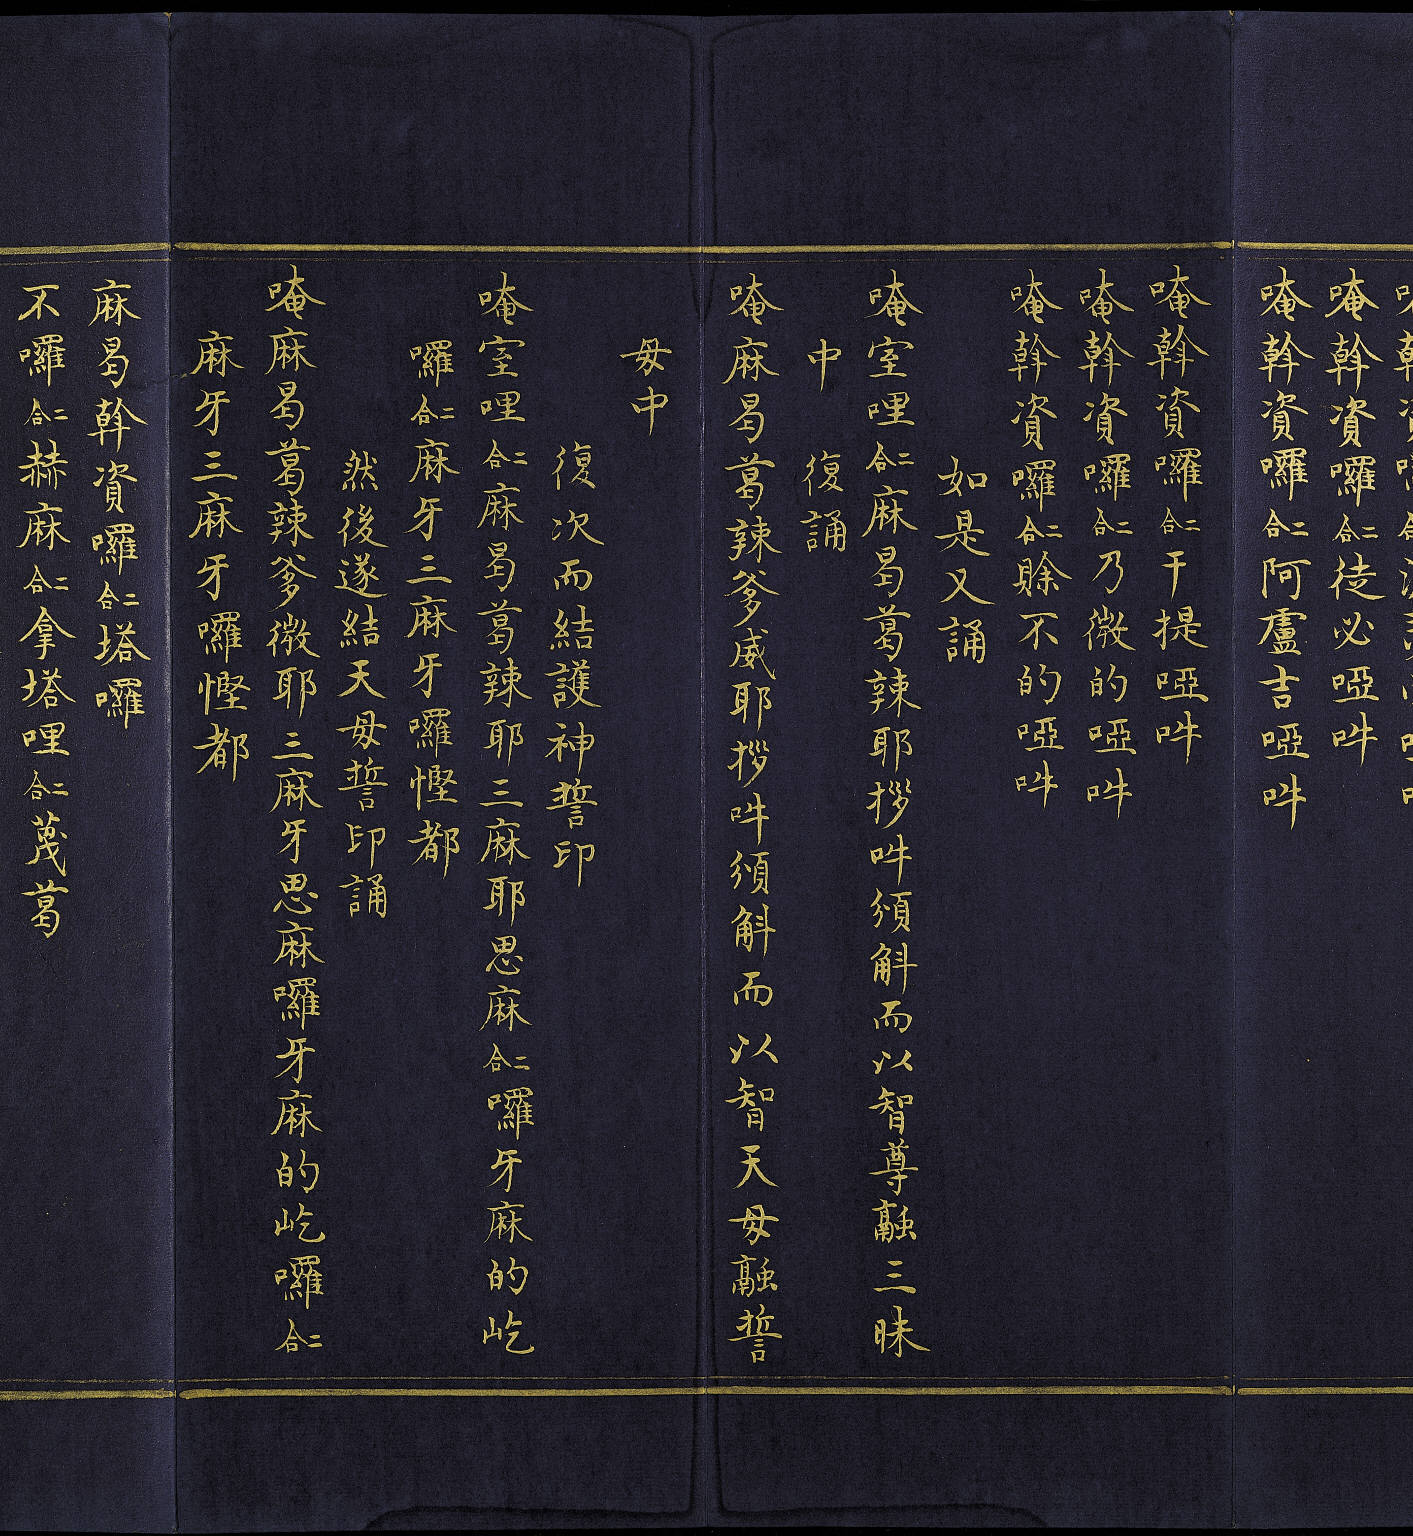 唵斡資囉二合徒必啞吽
唵斡資囉二合阿盧吉啞吽
唵斡資囉二合干提啞吽
唵斡資囉二合乃微的啞吽
唵斡資囉二合賒不的啞吽
如是又誦
唵室哩二合麻曷葛辣耶拶吽須斛而以智尊融三昧
中 復誦
唵麻曷葛辣爹威耶拶吽須斛而以智天母融誓
母中
復次而結護神誓印
唵室哩二合麻曷葛辣耶三麻耶思麻二合囉牙麻的屹
囉二合麻牙三麻牙囉慳都
然後遂結天母誓印誦
唵麻曷葛辣爹微耶三麻牙思麻囉牙麻的屹囉二合
麻牙三麻牙囉慳都
麻曷斡資囉二合塔囉
不囉二合赫麻二合拿塔哩二合蔑葛